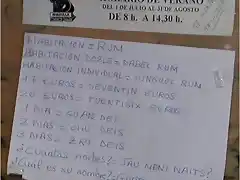 HORARIO DE VERANO
DEL 1 DE JULIO AL 31 DE AGOSTO
DE 8 h. A 14,30 h.
HABITACION = RUM
HABITACION DOBLE = DABEL RUM
HABITACION INDIVIDUAL = SINGUEL RUM
17 EUROS = SEVENTIN EUROS
26 EUROS = TUENTISIX EUROS
1 DIA = GUAN DEI
2 DIAS = CHU DEIS
3 DIAS = ZRI DEIS
¿CUANTAS NOCHES? = JAU MENI NAITS?
¿CUAL ES SU NOMBRE? =